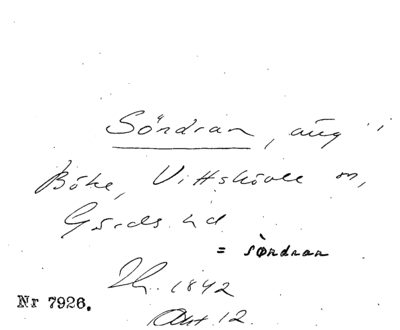 Söndran, äng i
Böke, Vittskövle sn,
Gärds hd
= söndran
1842
Akt 12.
Nr 7926.